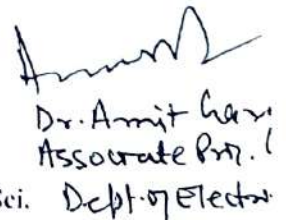 Dr. Amit
Associate Prof. (
sci. Deptt. of Electro